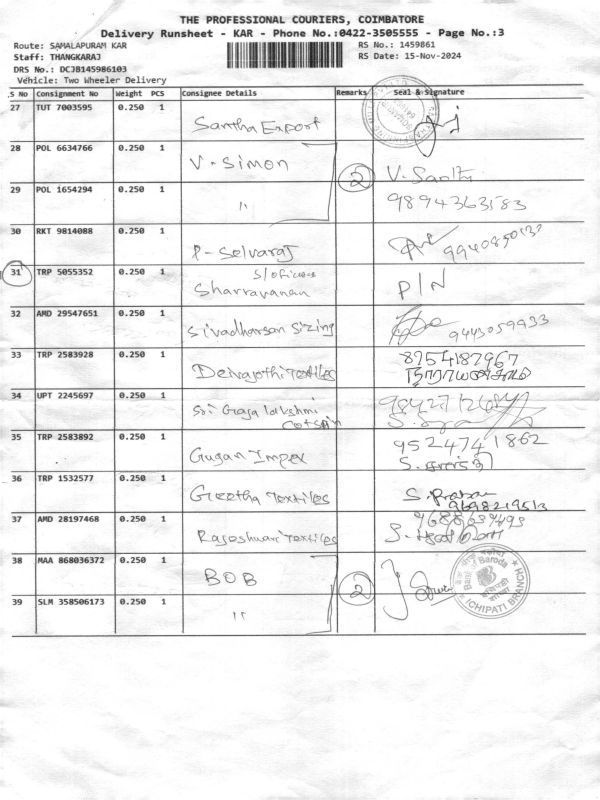 THE PROFESSIONAL COURIERS, COIMBATORE
Delivery Runsheet - KAR - Phone No.:0422-3505555 - Page No.:3
Route: SAMALAPURAM KAR
RS No.: 1459861
Staff: THANGKARAJ
RS Date: 15-Nov-2024
DRS No.: DCJB145986103
Vehicle: Two Wheeler Delivery
S No Consignment No Weight PCS Consignee Details Remarks Seal & Signature
27 TUT 7003595 0.250 1 Santha Export
28 POL 6634766 0.250 1 V. Simon 2 V. Santhi
29 POL 1654294 0.250 1 " 9894363583
30 RKT 9814088 0.250 1 P- Selvaraj
31 TRP 5055352 0.250 1 Sharravanan P/N
32 AMD 29547651 0.250 1 Sivadharsan Sizing 9443059933
33 TRP 2583928 0.250 1 Deivajothi Textiles 8754187967
34 UPT 2245697 0.250 1 Sri Gaja lakshmi
Cotspin
35 TRP 2583892 0.250 1 Gugan Impex 9524741862
36 TRP 1532577 0.250 1 Geetha Textiles
9698219513
37 AMD 28197468 0.250 1 Rajeshwari Textiles
38 MAA 868036372 0.250 1 BOB 2
39 SLM 358506173 0.250 1 "
Bank of Baroda
ICHIPATI BRANCH